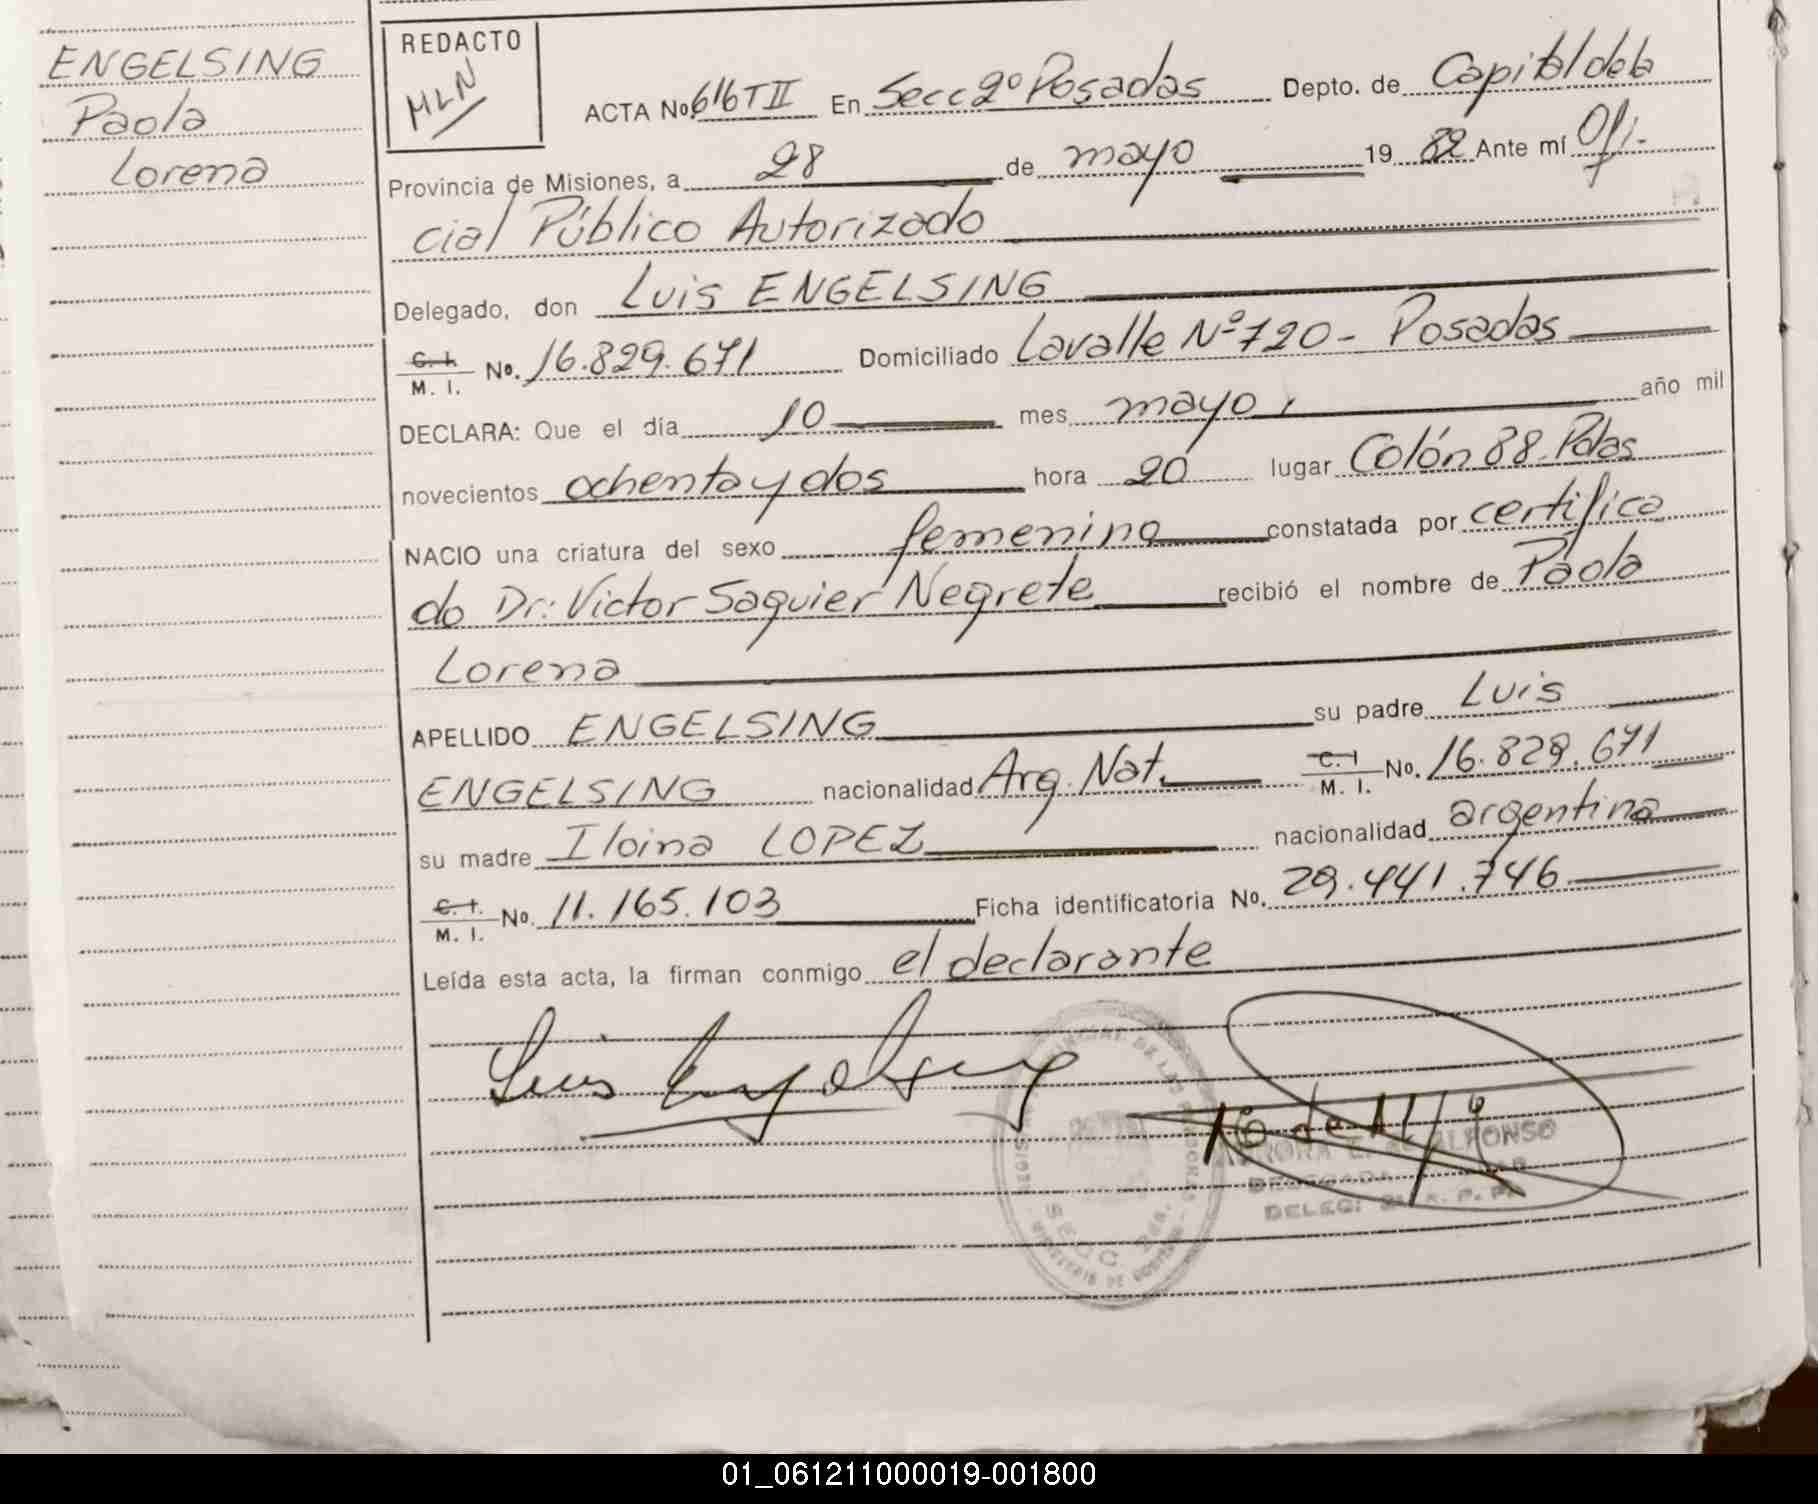 ENGELSING
Paola
Lorena
REDACTO
MLN
ACTA No. 616 T II En Secc 2º Posadas Depto. de Capital de la
Provincia de Misiones, a 28 de mayo 19 82 Ante mí Ofi-
cial Público Autorizado
Delegado, don Luis ENGELSING
C. I. M. I. No. 16.829.671 Domiciliado Lavalle Nº 720 - Posadas
DECLARA: Que el día 10 mes mayo, año mil
novecientos ochenta y dos hora 20 lugar Colón 88. Pdas
NACIO una criatura del sexo femenino constatada por certifica
do Dr: Victor Saguier Negrete recibió el nombre de Paola
Lorena
APELLIDO ENGELSING su padre Luis
ENGELSING nacionalidad Arg. Nat. C. I M. I. No. 16.829.671
su madre Iloina LOPEZ nacionalidad argentina
C. I. M. I. No. 11.165.103 Ficha identificatoria No. 29.441.746
Leída esta acta, la firman conmigo el declarante
Luis Engelsing
ALFONSO
SECC.
01_061211000019-001800